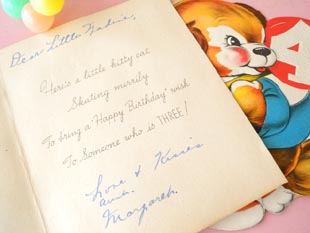 Dear Little Nadine,
Here's a little kitty cat
Skating merrily
To bring a "Happy Birthday" wish
To Someone who is THREE!
Love & Kisses
Aunt
Margaret.